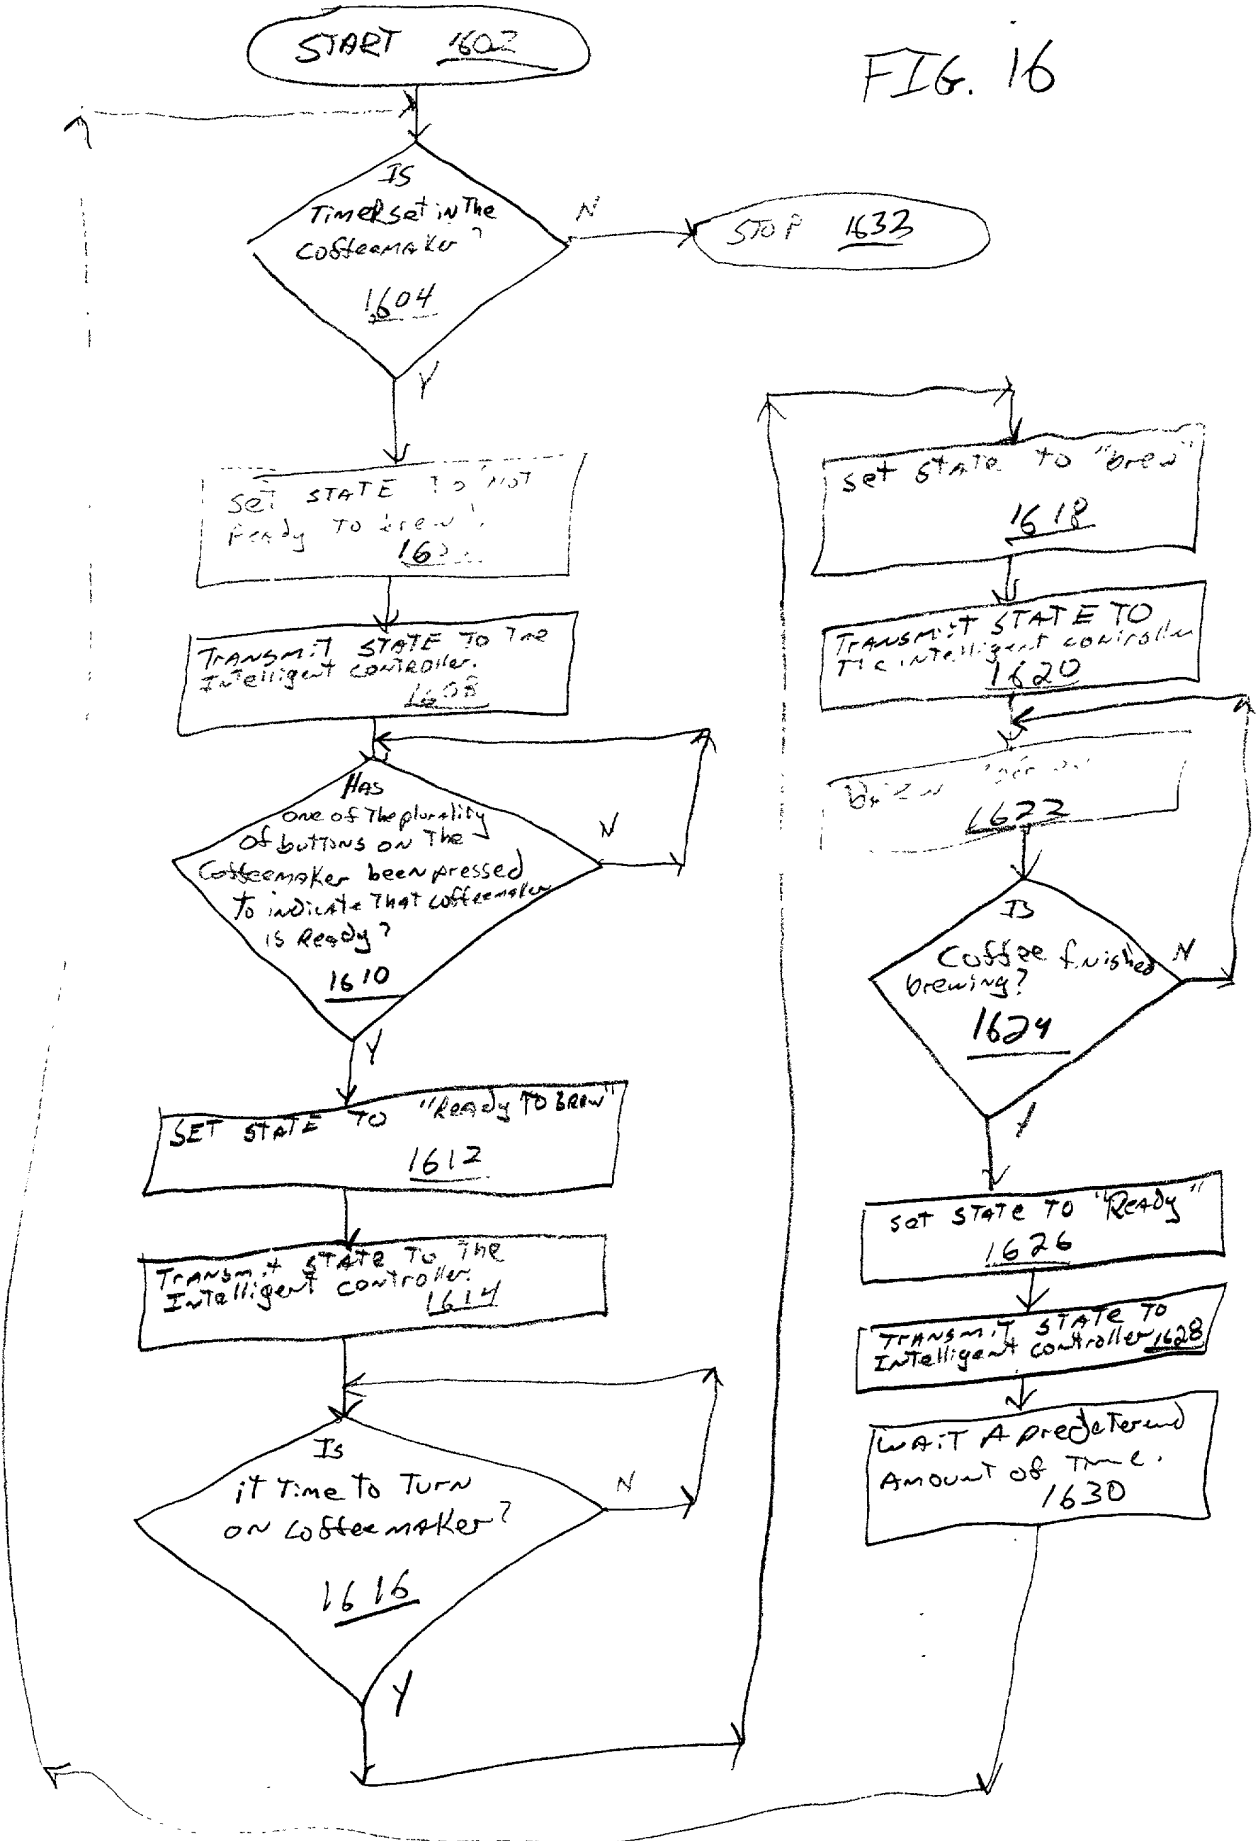 START 1602
FIG. 16
Is
Timer set in The
Coffeemaker?
1604
N
STOP 1633
Y
Set STATE To "Not
Ready To brew".
Transmit STATE To The
Intelligent Controller.
1608
Has
one of The plurality
of buttons on The
Coffeemaker been pressed
To indicate That coffeemaker
is Ready?
1610
N
Y
SET STATE TO "Ready To brew"
1612
Transmit STATE To The
Intelligent Controller.
1614
Is
it Time To Turn
on coffeemaker?
1616
N
Y
Set STATE to "brew"
1618
Transmit STATE TO
The intelligent controller
1620
1622
Is
Coffee finished
brewing?
1624
N
Y
Set STATE TO "Ready"
1626
Transmit STATE To
Intelligent controller 1628
Wait A predetermd
Amount of Time.
1630